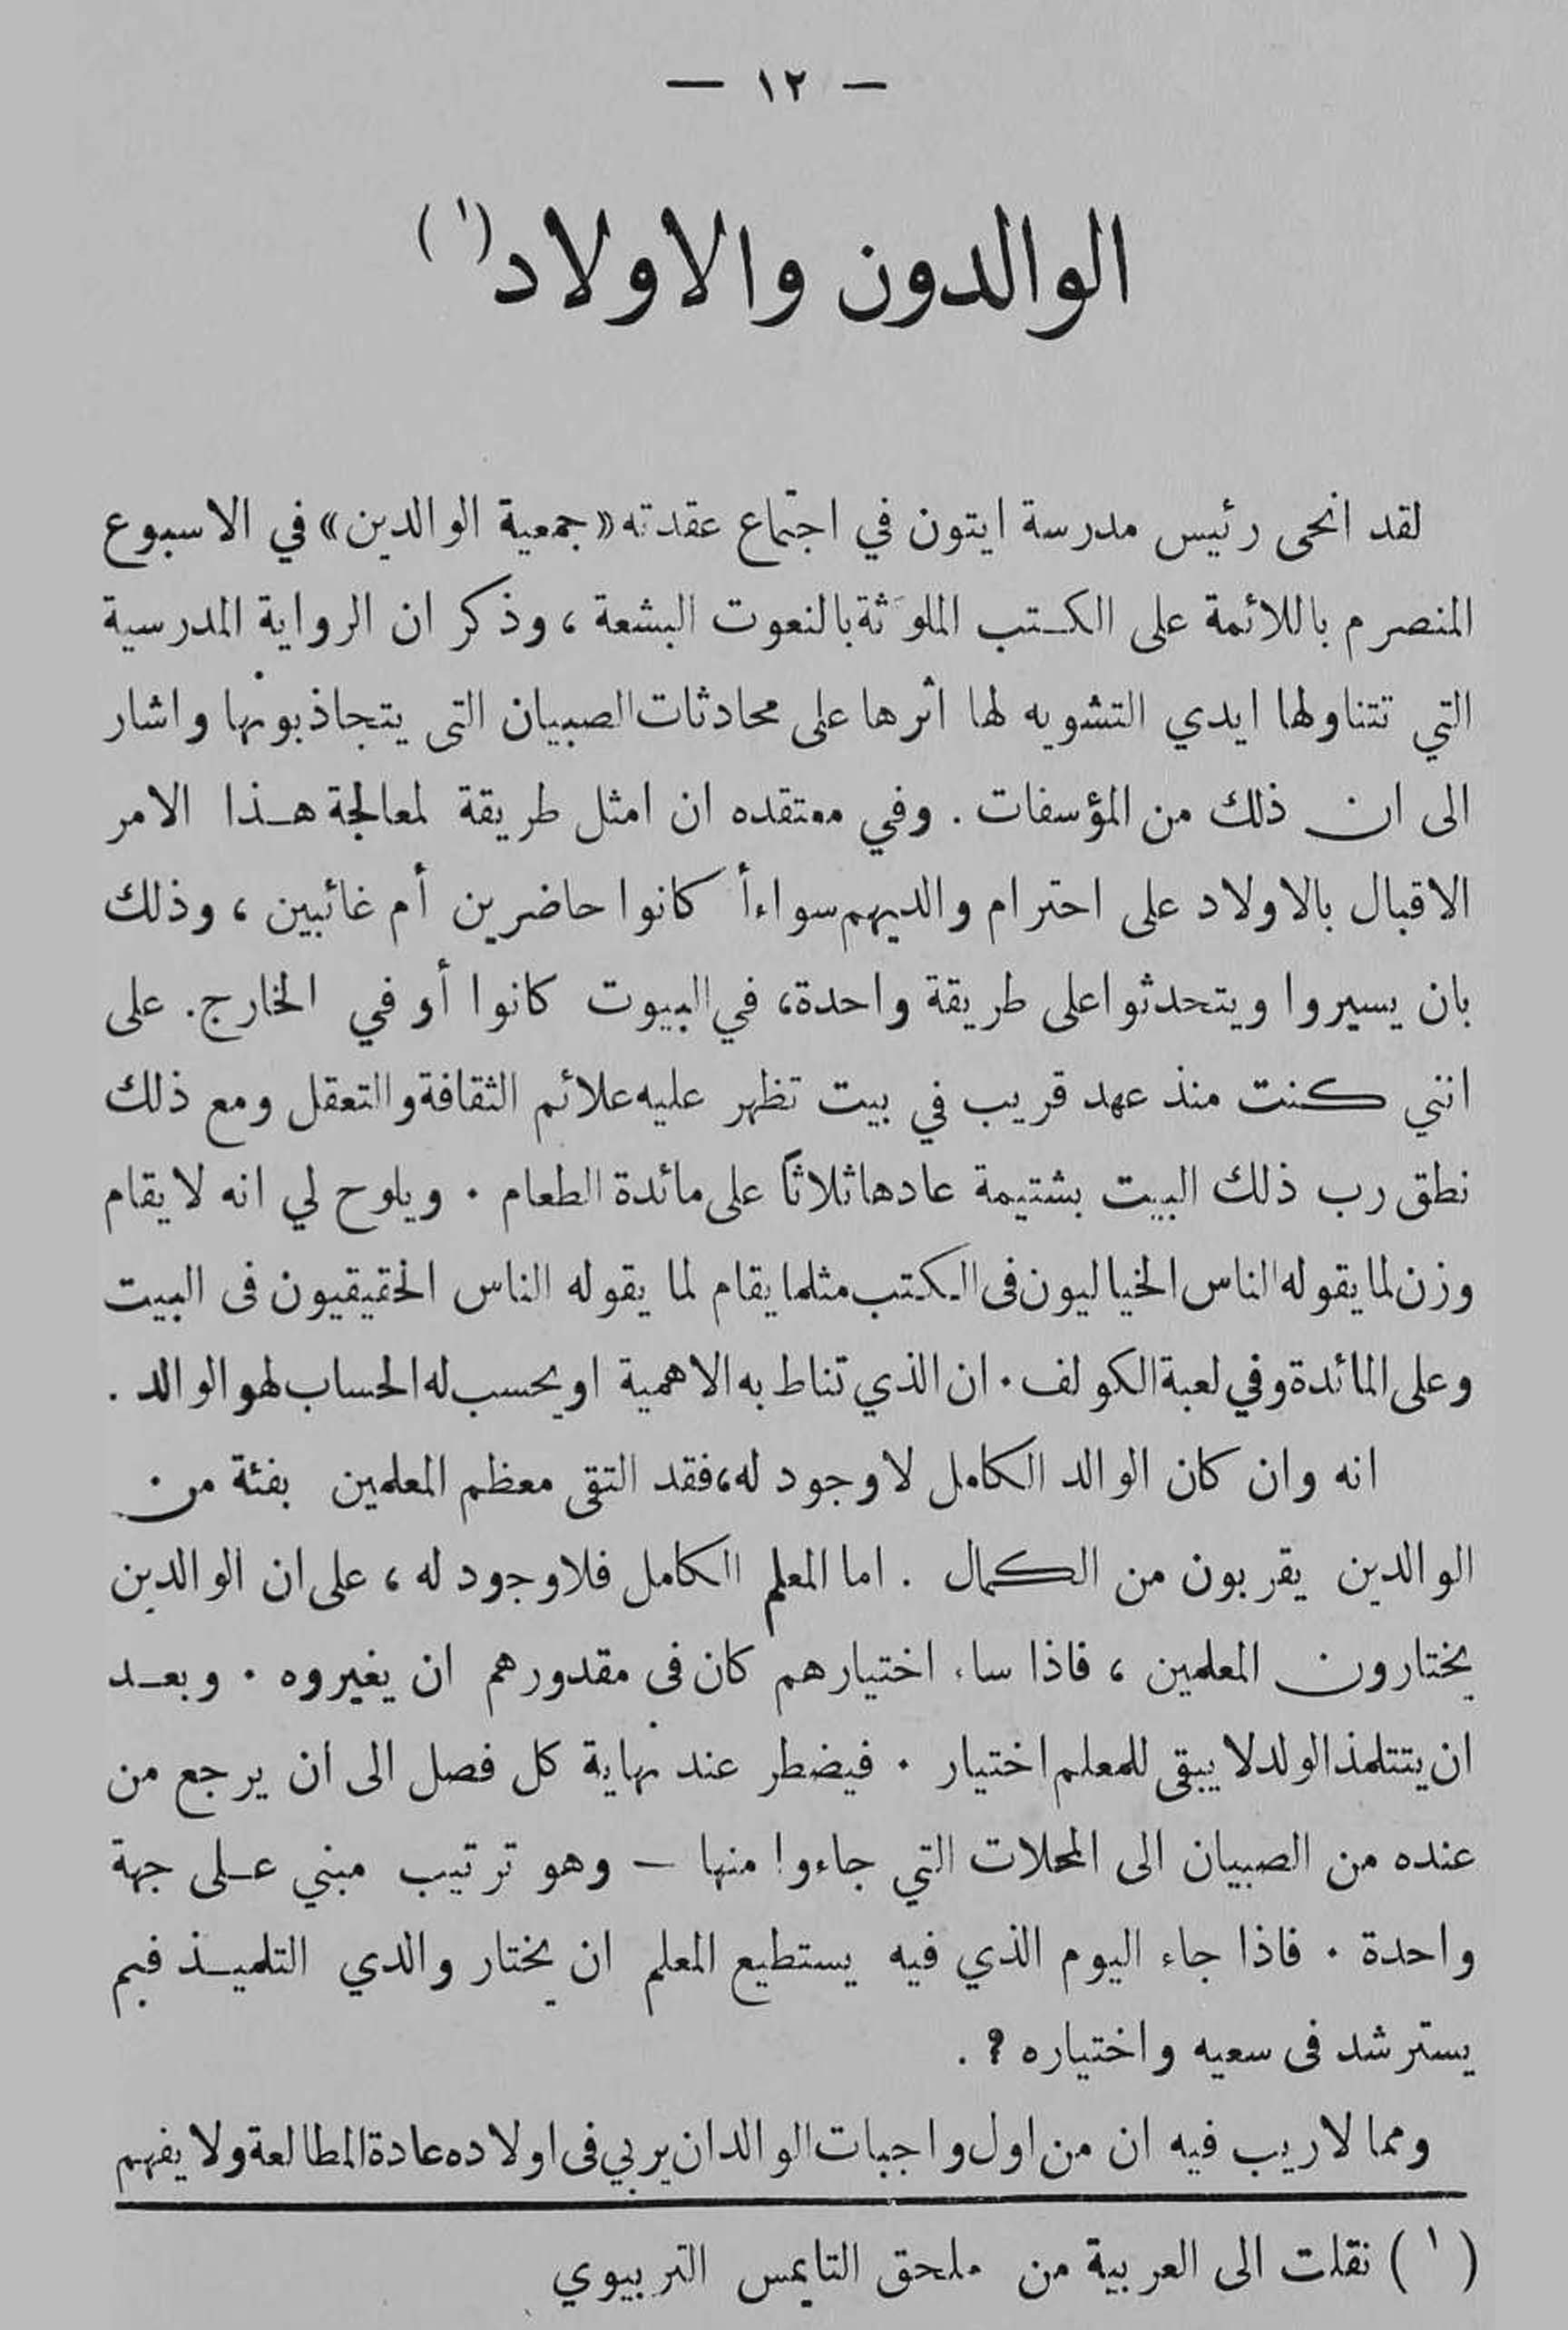 — ١٢ —
الوالدون والاولاد (١)
لقد انحى رئيس مدرسة ايتون في اجتماع عقدته «جمعية الوالدين» في الاسبوع
المنصرم باللائمة على الكتب الملوَثة بالنعوت البشعة ، وذكر ان الرواية المدرسية
التي تتناولها ايدي التشويه لها اثرها على محادثات الصبيان التى يتجاذبونها واشار
الى ان ذلك من المؤسفات . وفي معتقده ان امثل طريقة لمعالجة هذا الامر
الاقبال بالاولاد على احترام والديهم سواءأ كانوا حاضرين أم غائبين ، وذلك
بان يسيروا ويتحدثوا على طريقة واحدة، في البيوت كانوا أو في الخارج. على
انني كنت منذ عهد قريب في بيت تظهر عليه علائم الثقافة والتعقل ومع ذلك
نطق رب ذلك البيت بشتيمة عادها ثلاثاً على مائدة الطعام . ويلوح لي انه لا يقام
وزن لما يقوله الناس الخياليون فى الكتب مثلما يقام لما يقوله الناس الحقيقيون فى البيت
وعلى المائدة وفي لعبة الكولف . ان الذي تناط به الاهمية او يحسب له الحساب لهو الوالد .
انه وان كان الوالد الكامل لا وجود له، فقد التقى معظم المعلمين بفئة من
الوالدين يقربون من الكمال . اما المعلم الكامل فلا وجود له ، على ان الوالدين
يختارون المعلمين ، فاذا ساء اختيارهم كان فى مقدورهم ان يغيروه . وبعد
ان يتتلمذ الولد لا يبقى للمعلم اختيار . فيضطر عند نهاية كل فصل الى ان يرجع من
عنده من الصبيان الى المحلات التي جاءوا منها — وهو ترتيب مبني على جهة
واحدة . فاذا جاء اليوم الذي فيه يستطيع المعلم ان يختار والدي التلميذ فبم
يسترشد فى سعيه واختياره ؟ .
ومما لاريب فيه ان من اول واجبات الوالد ان يربي فى اولاده عادة المطالعة ولا يفهم
(١) نقلت الى العربية من ملحق التايمس التربيوي